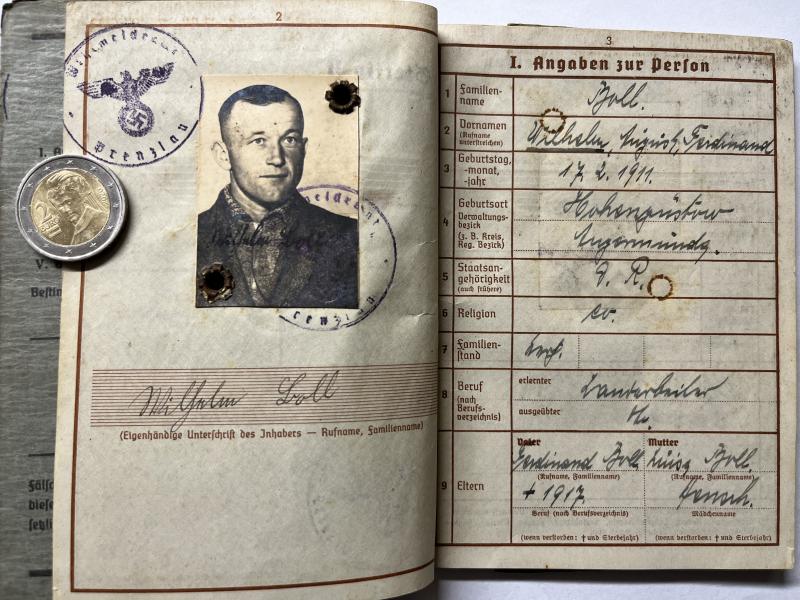 2
Wehrmeldeamt
Prenzlau
Wilhelm Boll
Wilhelm Boll
(Eigenhändige Unterschrift des Inhabers — Rufname, Familienname)
3
I. Angaben zur Person
1 Familien-
name
Boll.
2 Vornamen
(Rufname
unterstreichen)
Wilhelm, August, Ferdinand
3 Geburtstag,
-monat,
-jahr
17. 2. 1911.
4 Geburtsort
Verwaltungs-
bezirk
(z. B. Kreis,
Reg. Bezirk)
Hohengüstow
Angermünde.
5 Staatsan-
gehörigkeit
(auch frühere)
D. R.
6 Religion
ev.
7 Familien-
stand
8 Beruf
(nach
Berufs-
verzeichnis)
erlernter
Landarbeiter
ausgeübter
9 Eltern
Vater
Ferdinand Boll
(Rufname, Familienname)
† 1917.
Beruf (nach Berufsverzeichnis)
(wenn verstorben: † und Sterbejahr)
Mutter
Luise Boll.
(Rufname, Familienname)
Mädchenname
(wenn verstorben: † und Sterbejahr)